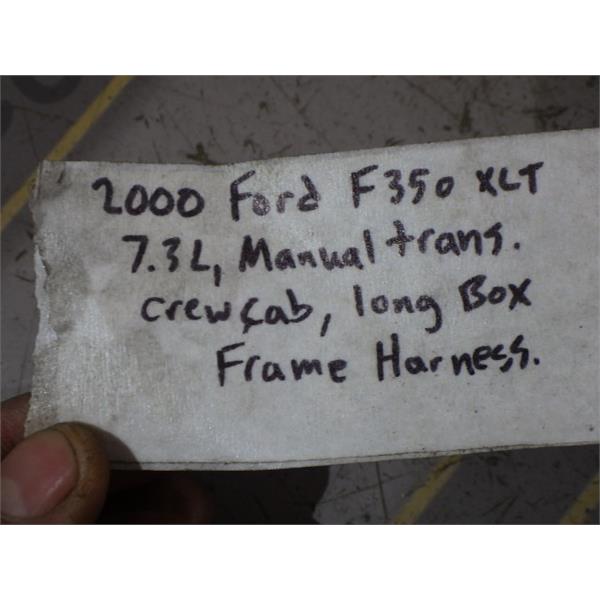 2000 Ford F350 XLT
7.3L, Manual trans.
crew cab, long Box
Frame Harness.